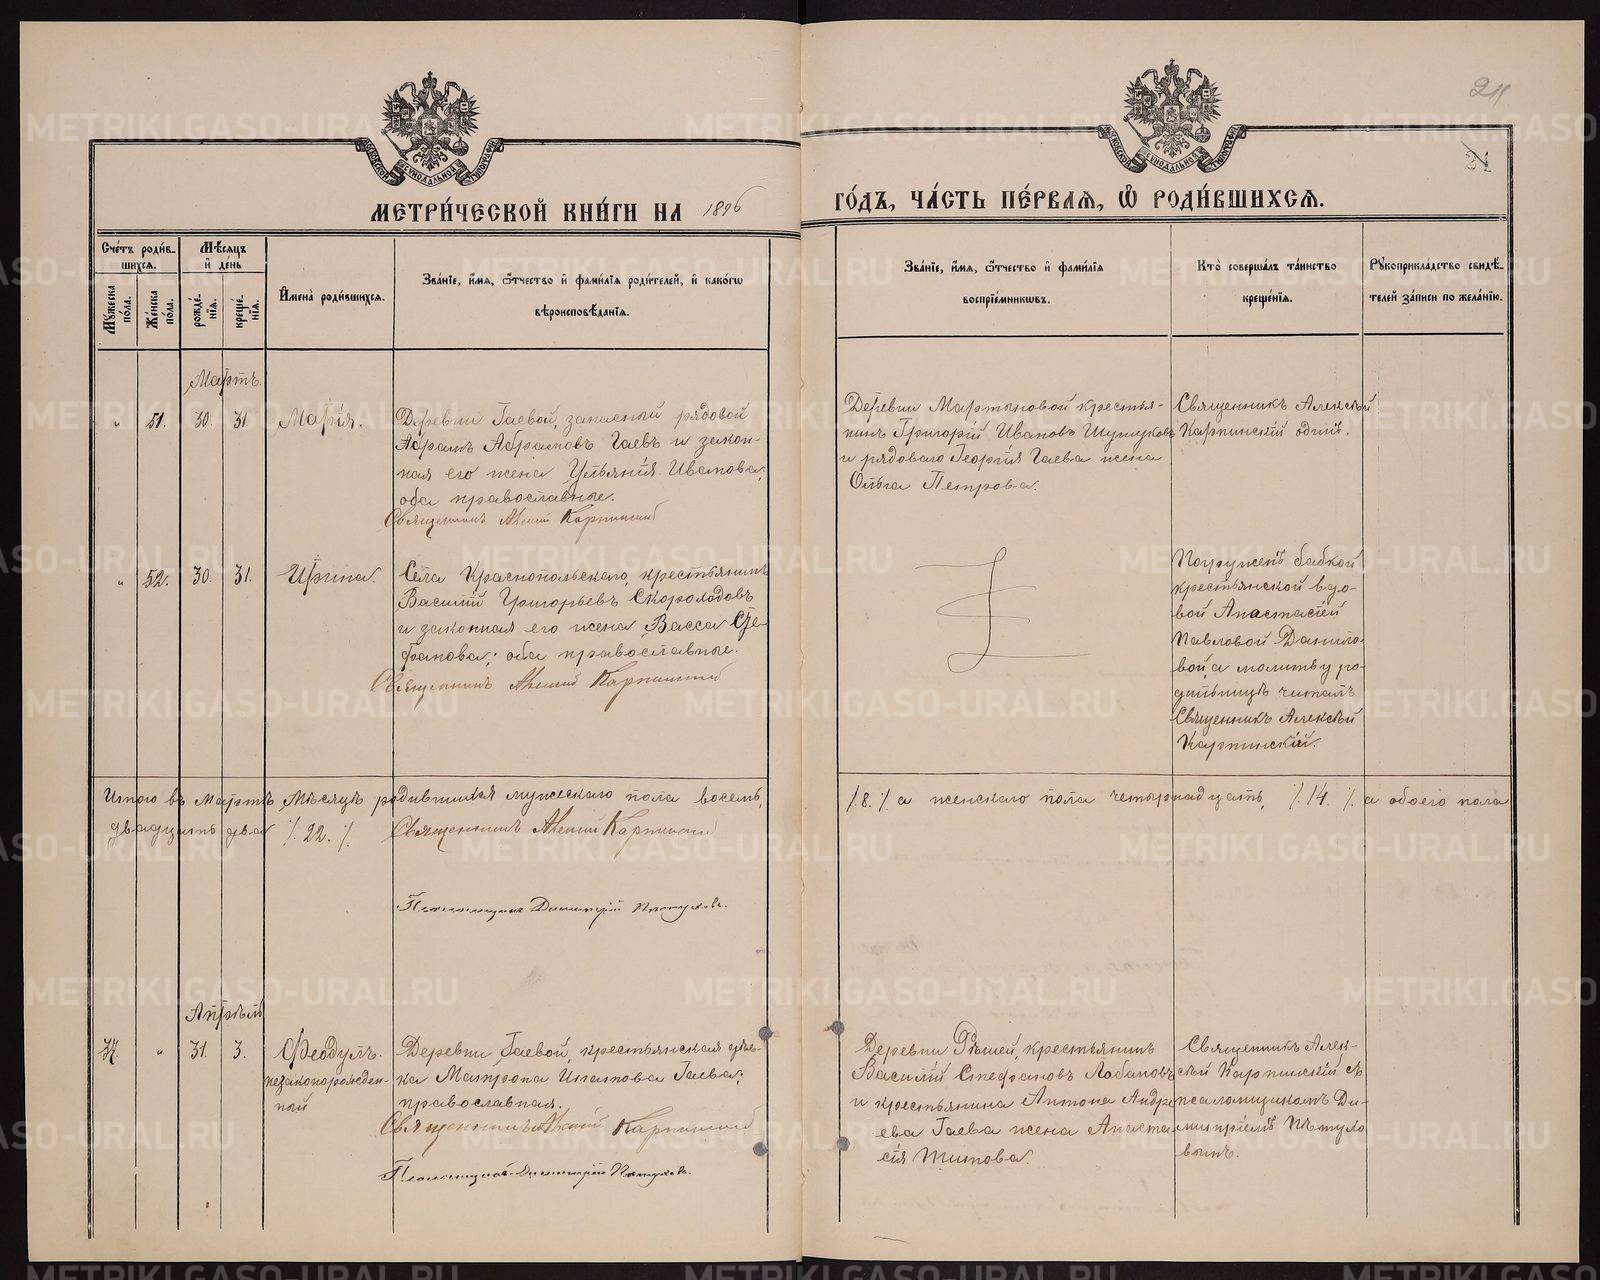 МЕТРИ́ЧЕСКОЙ КНИ́ГИ НА 1896
ГО́ДЪ, ЧА́СТЬ ПЕ́РВАЯ, Ѡ РОДИ́ВШИХСЯ.
21
Сче́тъ роди́в-
шихся.
Мѣ́сяцъ
и де́нь
Му́жеска по́ла.
Же́нска по́ла.
рожде́нія.
креще́нія.
Имена̀ роди́вшихся.
Зва́ніе, и́мя, ѻ́тчество и фами́лія роди́телей, и како́гѡ
вѣроисповѣ́данія.
Зва́ніе, и́мя, ѻ́тчество и фами́лія
воспріе́мниковъ.
Кто̀ соверша́лъ та́инство
креще́нія.
Рукоприкла́дство свидѣ́-
телей за́писи по жела́нію.
Мартъ.
„ 51. 30. 31. Марія.
Деревни Гаевой, запасный рядовой
Абрамъ Абрамовъ Гаевъ и закон-
ная его жена Ульянія Иванова,
оба православные.
Священникъ Алексій Карпинскій
Деревни Мартыновой крестья-
нинъ Григорій Ивановъ Шушуковъ
и рядоваго Георгія Гаева жена
Ольга Петрова.
Священникъ Алексѣй
Карпинскій одинъ.
„ 52. 30. 31. Ирина.
Села Краснопольскаго, крестьянинъ
Василій Григорьевъ Скороходовъ
и законная его жена Васса Сте-
фанова; оба православные.
Священникъ Алексій Карпинскій
Погруженъ бабкой
крестьянской вдо-
вой Анастасіей
Павловой Данило-
вой, а молитву ро-
дильницѣ читалъ
Священникъ Алексѣй
Карпинскій.
Итого въ Мартѣ Мѣсяцѣ родившихся мужескаго пола восемь, /. 8. /. а женскаго пола четырнадцать, /. 14. /. а обоего пола
двадцать два /. 22. /. Священникъ Алексій Карпинскій
Псаломщикъ Димитрій Пѣтуховъ.
Апрѣль
37. „ 31. 3. Феодулъ
незаконорожден-
ный
Деревни Гаевой, крестьянская дѣв-
ка Матрона Ипатова Гаева;
православная.
Священникъ Алексій Карпинскій
Псаломщикъ Димитрій Пѣтуховъ.
Деревни Фѣшей, крестьянинъ
Василій Стефановъ Лобановъ
и крестьянина Антона Андре-
ева Гаева жена Анаста-
сія Титова.
Священникъ Алек-
сѣй Карпинскій съ
псаломщикомъ Ди-
митріемъ Пѣтухо-
вымъ.
METRIKI.GASO-URAL.RU